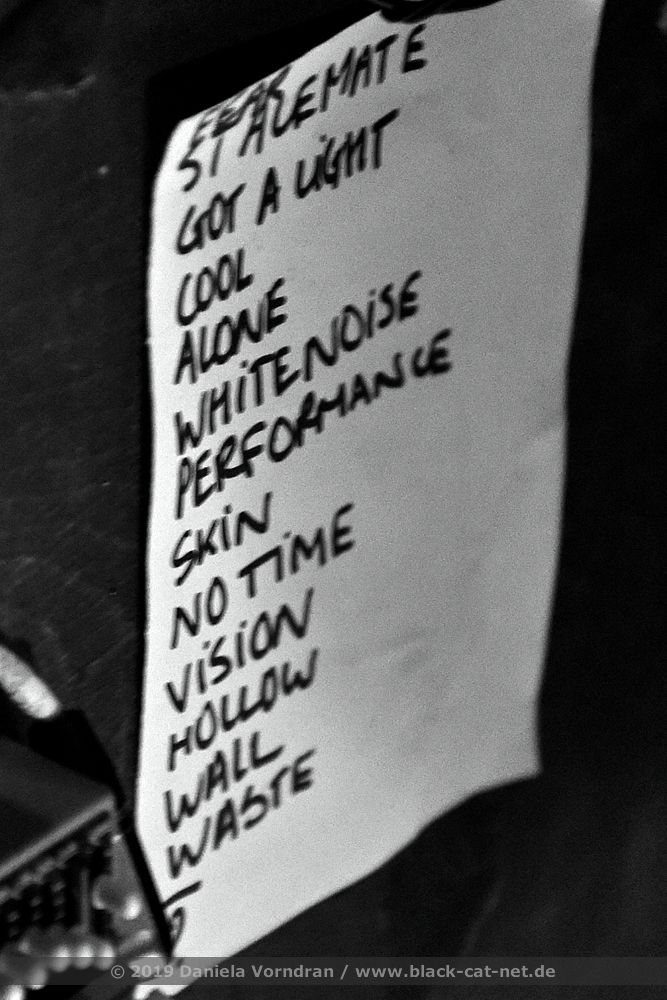 FEAR
STALEMATE
GOT A LiGHT
COOL
ALONE
WHiTENOiSE
PERFORMANCE
SKiN
NO TiME
ViSiON
HOLLOW
WALL
WASTE
© 2019 Daniela Vorndran / www.black-cat-net.de